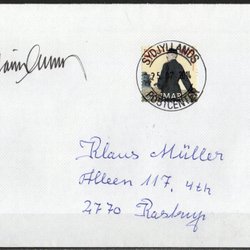 SYDJYLLANDS
POSTCENTER
Klaus Müller
Alleen 117, 4th
2770 Kastrup